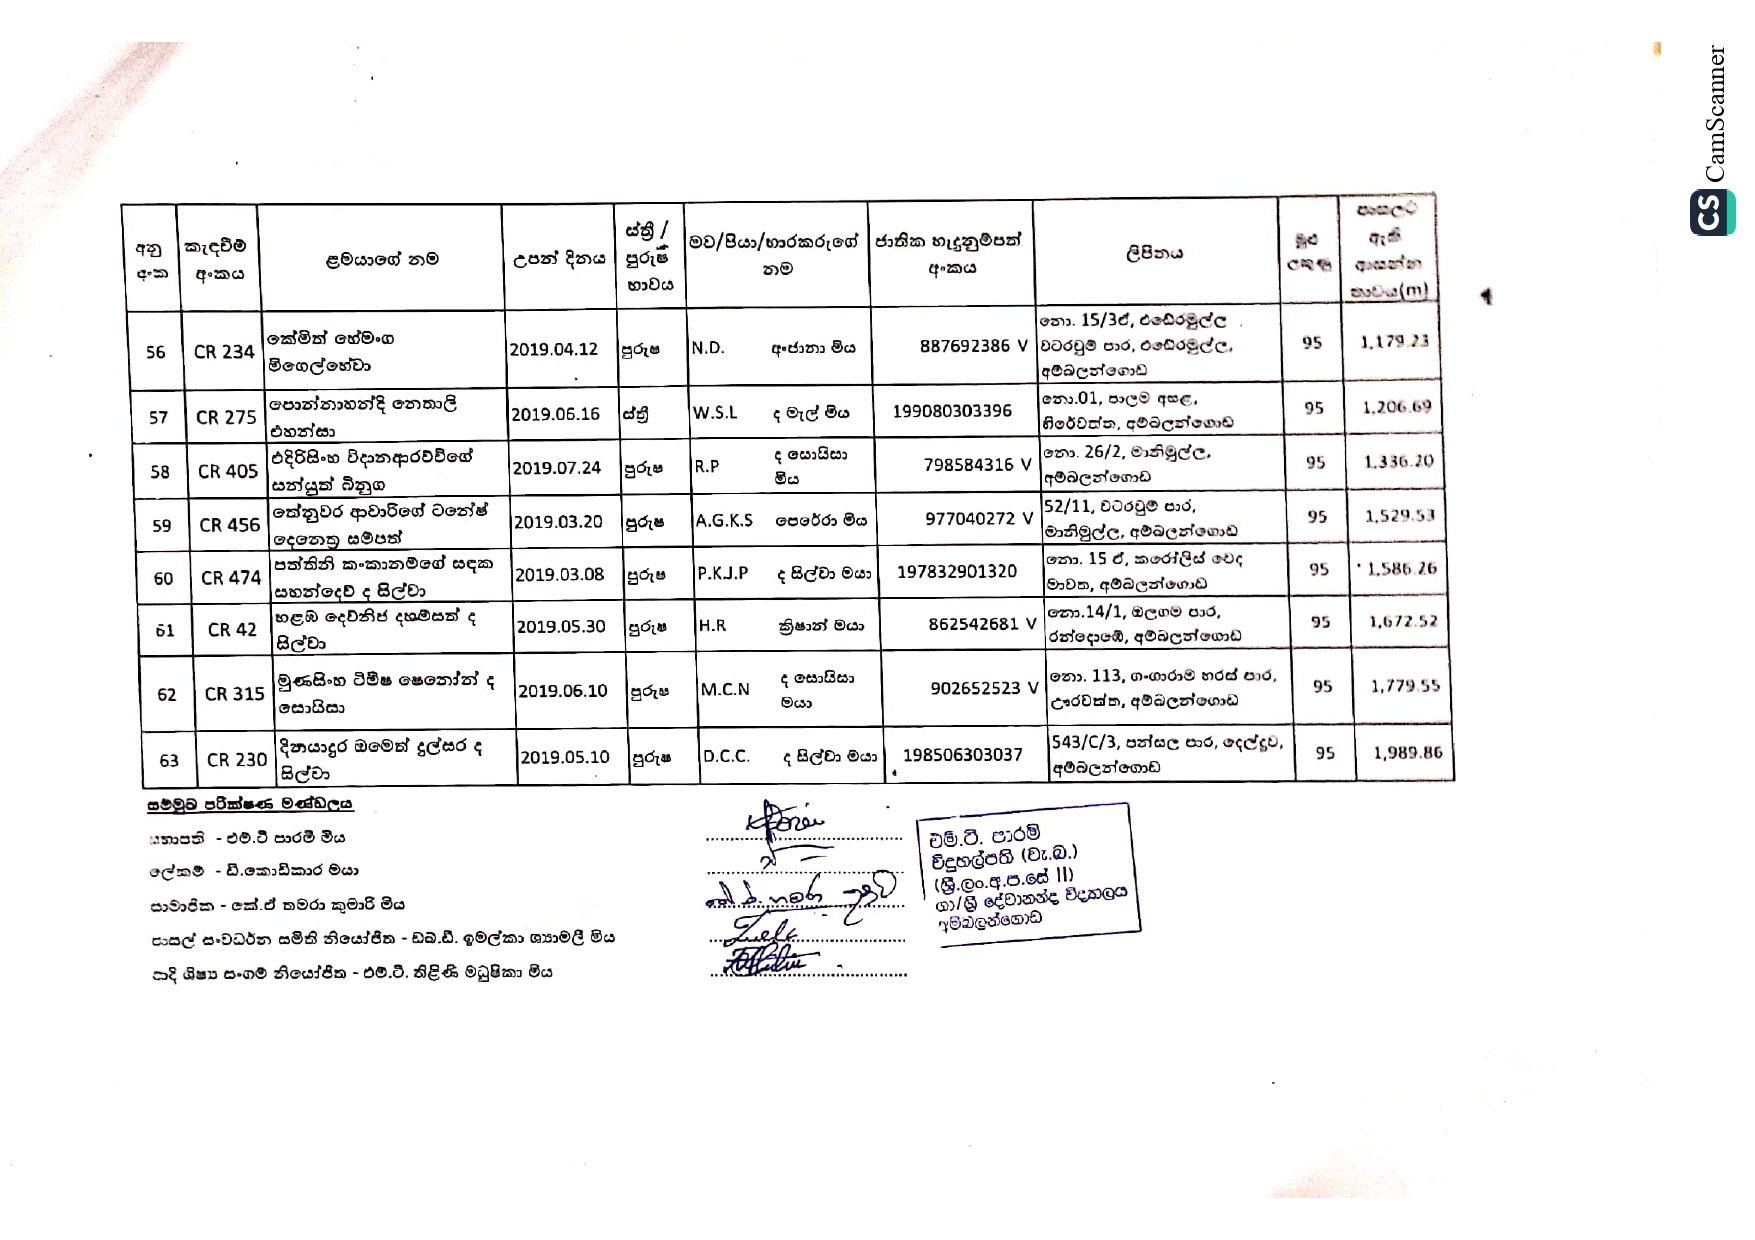 CamScanner
CS
අනු අංක | කැඳවීම් අංකය | ළමයාගේ නම | උපන් දිනය | ස්ත්‍රී / පුරුෂ භාවය | මව/පියා/භාරකරුගේ නම | ජාතික හැඳුනුම්පත් අංකය | ලිපිනය | මුළු ලකුණු | පාසලට ඇති ආසන්න භාවය(m)
56 | CR 234 | කේමිත් හේමංග මිගෙල්හේවා | 2019.04.12 | පුරුෂ | N.D. අංජානා මිය | 887692386 V | නො. 15/3ඒ, එඬේරමුල්ල වටරවුම් පාර, එඬේරමුල්ල, අම්බලන්ගොඩ | 95 | 1,179.23
57 | CR 275 | පොන්නාහන්දි නෙතාලි එහන්සා | 2019.06.16 | ස්ත්‍රී | W.S.L ද මැල් මිය | 199080303396 | නො.01, පාලම අසළ, හිරේවත්ත, අම්බලන්ගොඩ | 95 | 1,206.69
58 | CR 405 | එදිරිසිංහ විදානආරච්චිගේ සන්යුත් බිනුග | 2019.07.24 | පුරුෂ | R.P ද සොයිසා මිය | 798584316 V | නො. 26/2, මානිමුල්ල, අම්බලන්ගොඩ | 95 | 1,336.20
59 | CR 456 | තේනුවර ආචාරිගේ ටනේෂ් දෙනෙත්‍ර සම්පත් | 2019.03.20 | පුරුෂ | A.G.K.S පෙරේරා මිය | 977040272 V | 52/11, වටරවුම් පාර, මානිමුල්ල, අම්බලන්ගොඩ | 95 | 1,529.53
60 | CR 474 | පත්තිනි කංකානම්ගේ සඳක සහන්දෙව් ද සිල්වා | 2019.03.08 | පුරුෂ | P.K.J.P ද සිල්වා මයා | 197832901320 | නො. 15 ඒ, කරෝලිස් වෙද මාවත, අම්බලන්ගොඩ | 95 | 1,586.26
61 | CR 42 | හළඹ දෙව්නිජ දහම්සත් ද සිල්වා | 2019.05.30 | පුරුෂ | H.R ක්‍රිෂාන් මයා | 862542681 V | නො.14/1, ඔලගම පාර, රන්දොඹේ, අම්බලන්ගොඩ | 95 | 1,672.52
62 | CR 315 | මුණසිංහ ටිමීෂ ෂෙනෝන් ද සොයිසා | 2019.06.10 | පුරුෂ | M.C.N ද සොයිසා මයා | 902652523 V | නො. 113, ගංගාරාම හරස් පාර, ඌරවත්ත, අම්බලන්ගොඩ | 95 | 1,779.55
63 | CR 230 | දිනයාදුර ඔමෙත් දුල්සර ද සිල්වා | 2019.05.10 | පුරුෂ | D.C.C. ද සිල්වා මයා | 198506303037 | 543/C/3, පන්සල පාර, දෙල්දූව, අම්බලන්ගොඩ | 95 | 1,989.86
සම්මුඛ පරීක්ෂණ මණ්ඩලය
සභාපති - එම්.ටී පාරමී මිය
ලේකම් - ඩී.කොඩිකාර මයා
සාමාජික - කේ.ඒ තමරා කුමාරි මිය
පාසල් සංවර්ධන සමිති නියෝජිත - ඩබ්.ඩී. ඉමල්කා ශ්‍යාමලී මිය
ආදි ශිෂ්‍ය සංගම් නියෝජිත - එම්.ටී. තිළිණි මධුෂිකා මිය
එම්.ටී. පාරමී
විදුහල්පති (වැ.බ.)
(ශ්‍රී.ලං.අ.ප.සේ II)
ගා/ශ්‍රී දේවානන්ද විද්‍යාලය
අම්බලන්ගොඩ